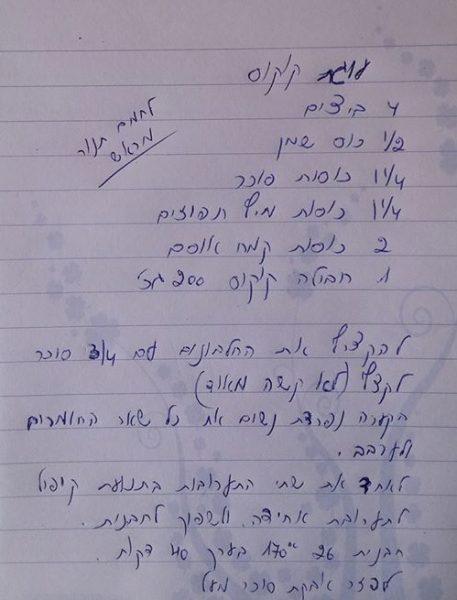 עוגת קוקוס
4 ביצים
1/2 כוס שמן
1 1/4 כוסות סוכר
1 1/4 כוסות מיץ תפוזים
2 כוסות קמח אוסם
1 חבילה קוקוס 200 גר'
לחמם תנור
מראש
להקציף את החלבונים עם 3/4 סוכר
לקצף (לא קשה מאוד)
הקערה נפרדת נשים את כל שאר החומרים
ולערבב.
לאחד את שתי התערובות בתנועת קיפול
לתערובת אחידה. ולשפוך לתבנית.
תבנית 26 170° בערך 40 דקות.
לפזר אבקת סוכר מעל